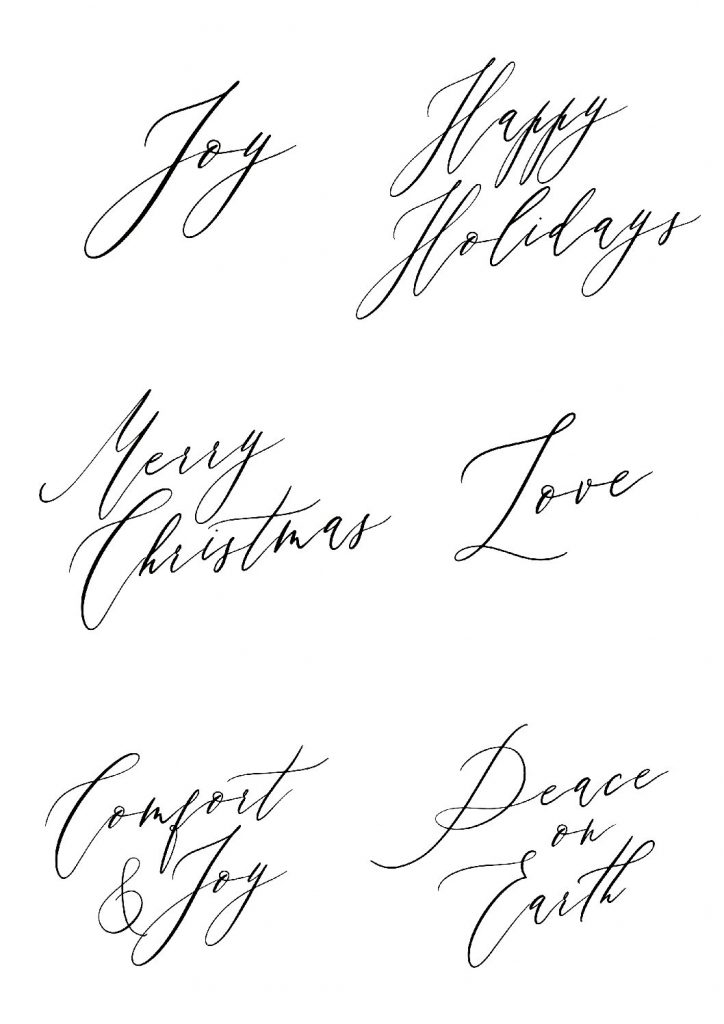 Joy
Happy
Holidays
Merry
Christmas
Love
Comfort
& Joy
Peace
on
Earth